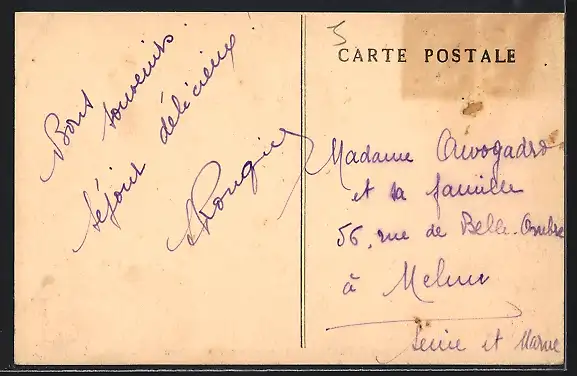 5
CARTE POSTALE
Bons
souvenirs
séjour délicieux
Rougier
Madame Avogadro
et sa famille
56, rue de Belle-Ombre
à Melun
Seine et Marne